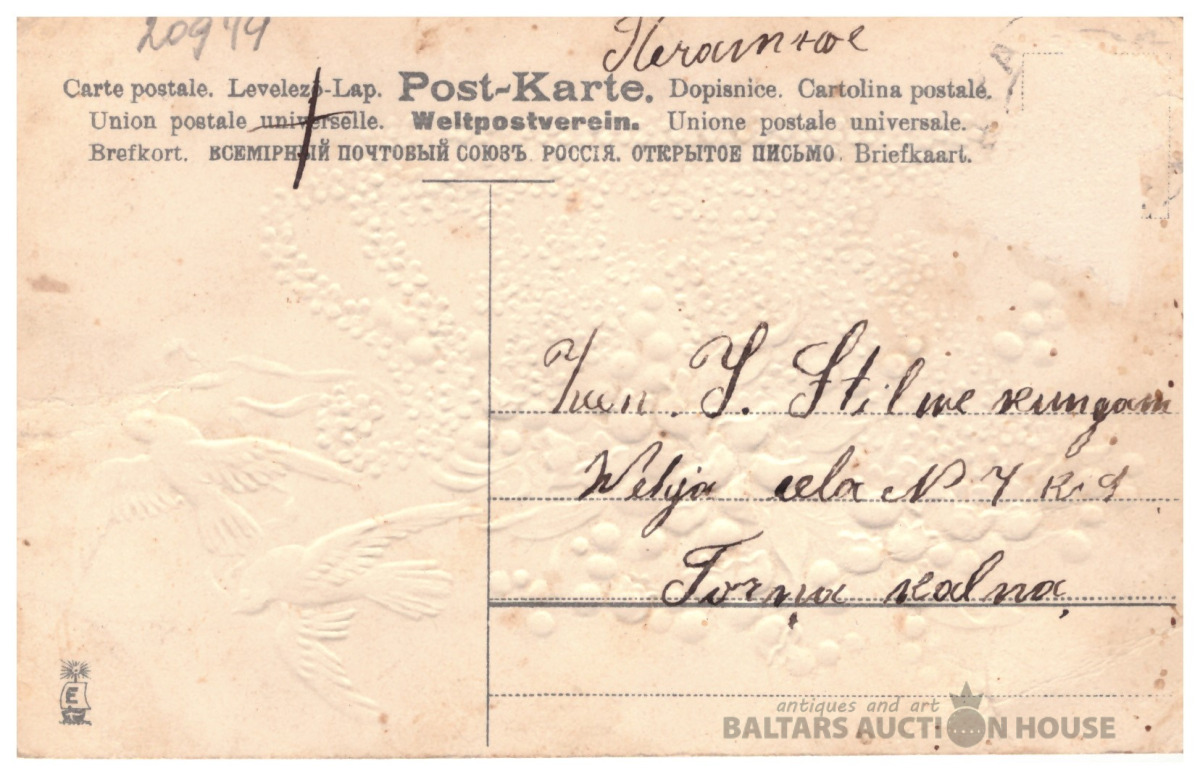 20944
Печатное
Carte postale. Levelező-Lap. Post-Karte. Dopisnice. Cartolina postale.
Union postale universelle. Weltpostverein. Unione postale universale.
Brefkort. ВСЕМІРНЫЙ ПОЧТОВЫЙ СОЮЗЪ РОССІЯ. ОТКРЫТОЕ ПИСЬМО. Briefkaart.
J. Stilwe kungam
Welija cela N 7
Torņa kalna
E
antiques and art
BALTARS AUCTION HOUSE